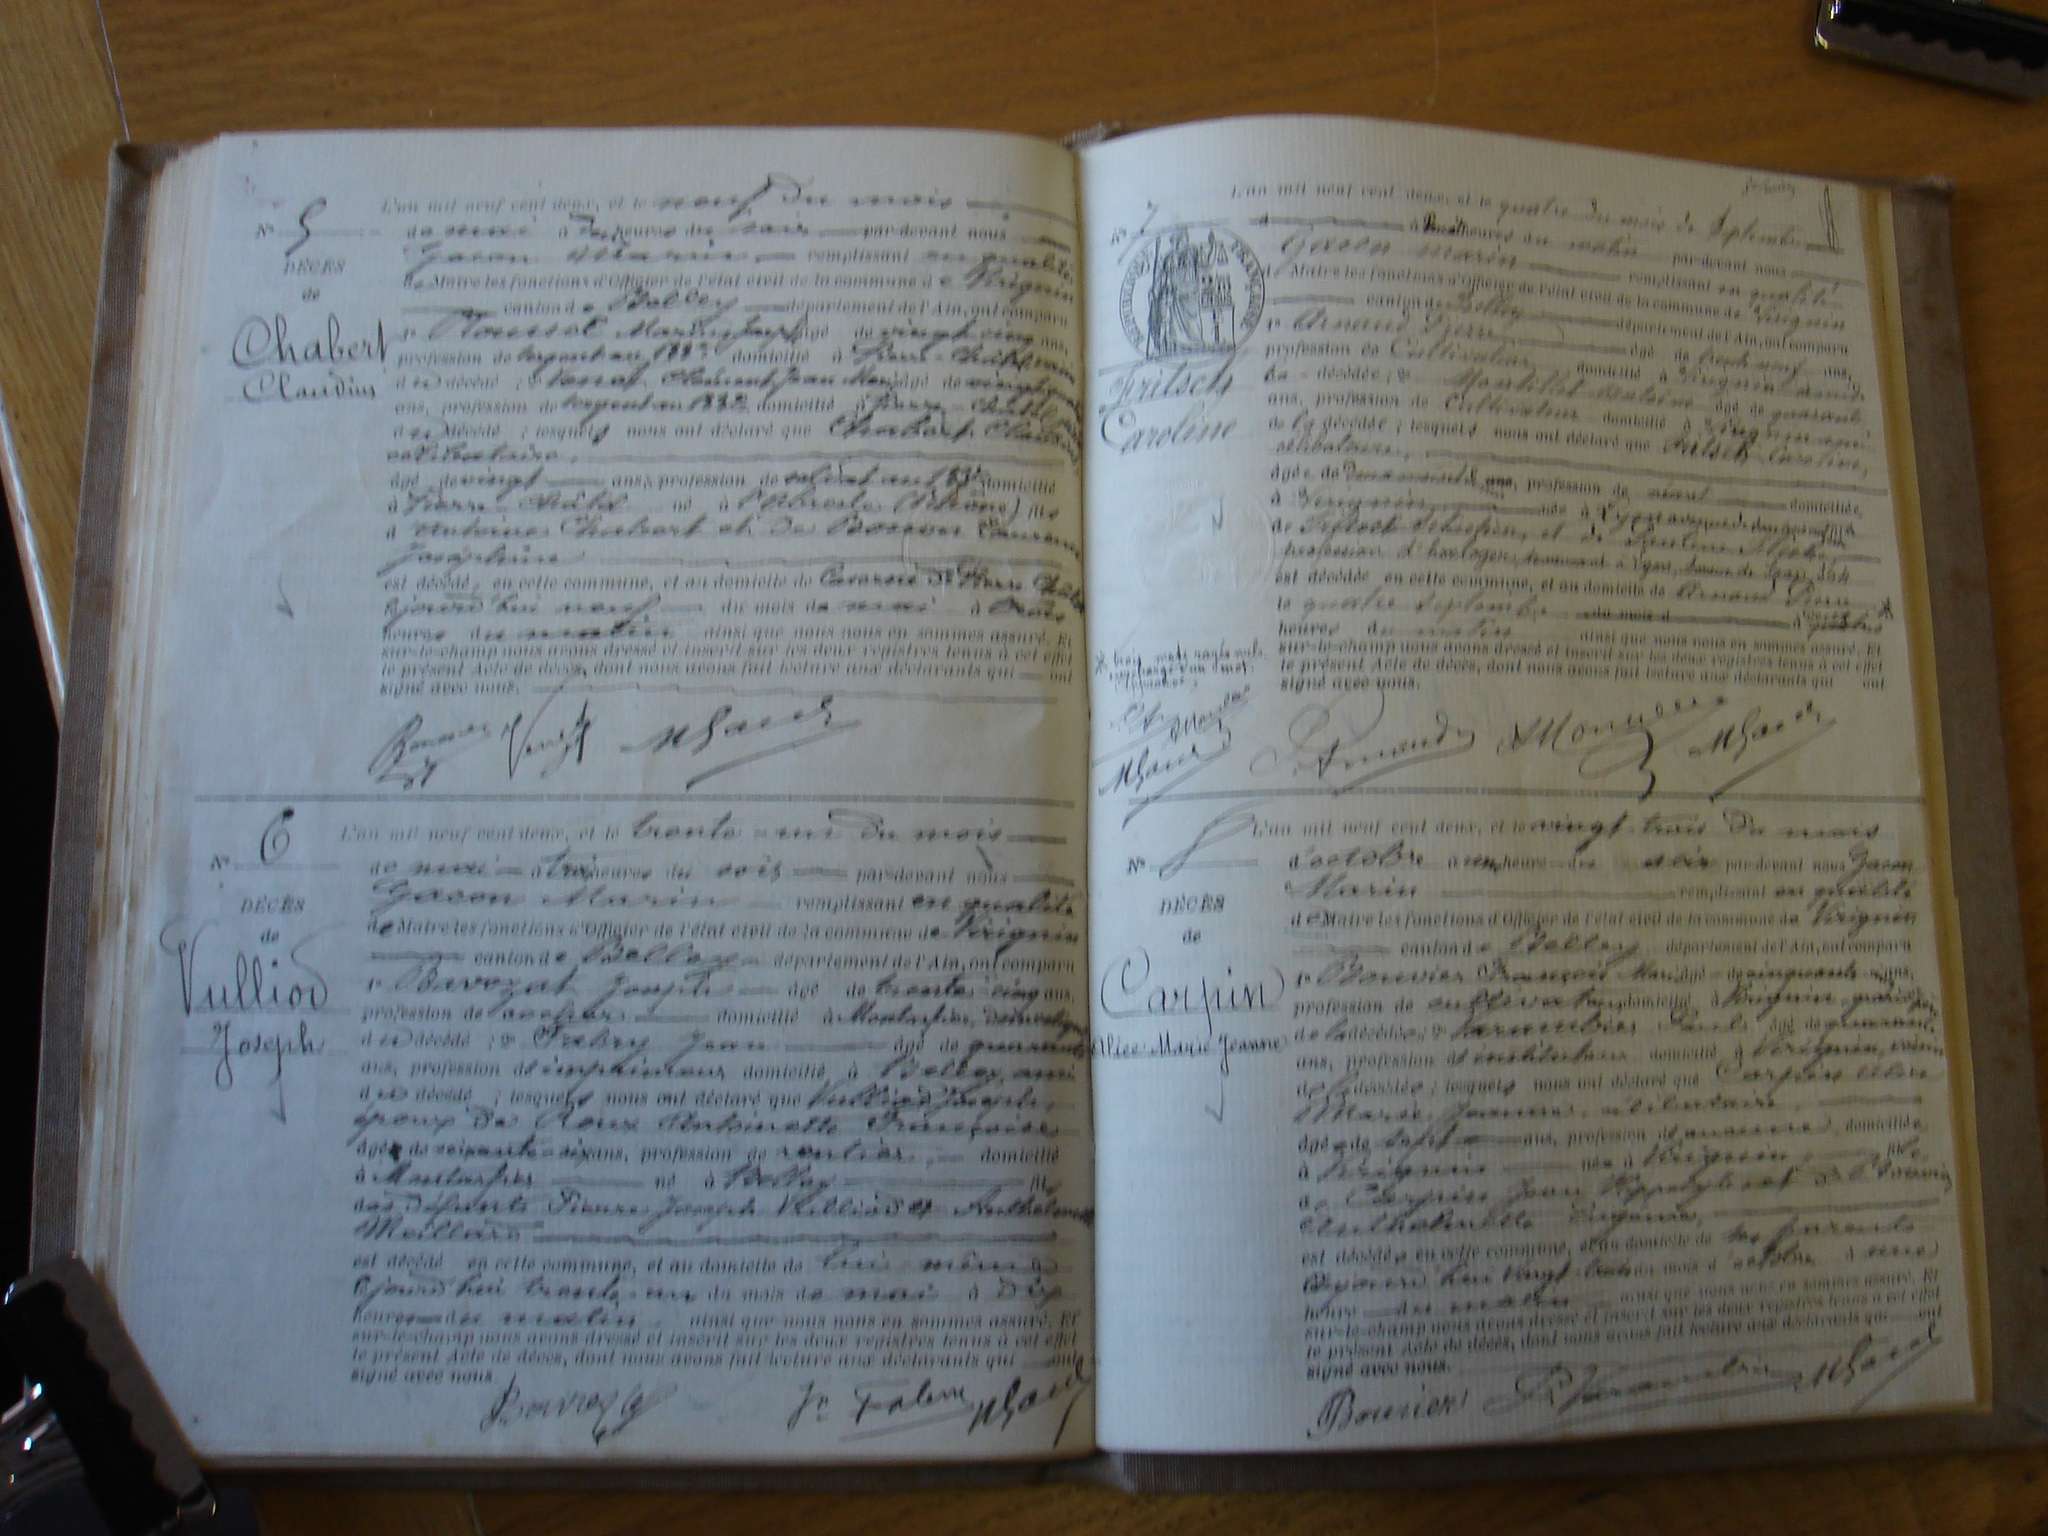 N° 5
DÉCÈS
de
Chabert
Claudius
L'an mil neuf cent deux, et le neuf du mois
de mai à heures du soir par-devant nous
Gacon Marin remplissant en qualité
de Maire les fonctions d'Officier de l'état civil de la commune de Virignin
canton de Belley département de l'Ain, ont comparu
1° Roussel âgé de vingt cinq ans,
profession de sergent au 133e domicilié à Pierre-Châtel, voisin
du décédé ; 2° Clément Jean âgé de vingt
ans, profession de sergent au 133e domicilié à Pierre-Châtel
du décédé ; lesquels nous ont déclaré que Chabert Claudius
célibataire,
âgé de vingt ans, profession de soldat au 133e domicilié
à Pierre-Châtel né à l'Arbresle (Rhône) fils
d'Antoine Chabert et de Laurence
Joséphine
est décédé, en cette commune, et au domicile de Caserne de Pierre Châtel
aujourd'hui neuf du mois de mai à trois
heures du matin ainsi que nous nous en sommes assuré. Et
sur-le-champ nous avons dressé et inscrit sur les deux registres tenus à cet effet
le présent Acte de décès, dont nous avons fait lecture aux déclarants qui ont
signé avec nous.
MGacon
N° 6
DÉCÈS
de
Vulliod
Joseph
L'an mil neuf cent deux, et le trente-un du mois
de mai à trois heures du soir par-devant nous
Gacon Marin remplissant en qualité
de Maire les fonctions d'Officier de l'état civil de la commune de Virignin
canton de Belley département de l'Ain, ont comparu
1° Bavozat Joseph âgé de trente cinq ans,
profession de domicilié à
du décédé ; 2° Jean âgé de quarante
ans, profession d'imprimeur domicilié à Belley, ami
du décédé ; lesquels nous ont déclaré que Vulliod Joseph,
époux de Roux Antoinette Françoise
âgé de soixante-six ans, profession de rentier, domicilié
à né à Belley fils
des défunts Pierre Joseph Vulliod et Anthelmette
Maillard
est décédé en cette commune, et au domicile de lui même
aujourd'hui trente-un du mois de mai à dix
heures du matin, ainsi que nous nous en sommes assuré. Et
sur-le-champ nous avons dressé et inscrit sur les deux registres tenus à cet effet
le présent Acte de décès, dont nous avons fait lecture aux déclarants qui ont
signé avec nous
MGacon
N° 7
RÉPUBLIQUE FRANÇAISE
Fritsch
Caroline
L'an mil neuf cent deux, et le quatre du mois de Septembre
à heures du matin par-devant nous
Gacon Marin remplissant en qualité
de Maire les fonctions d'Officier de l'état civil de la commune de Virignin
canton de Belley département de l'Ain, ont comparu
1° Arnaud Pierre âgé de trente neuf ans,
profession de Cultivateur domicilié à Virignin
la décédée ; 2° Antoine âgé de quarante
ans, profession de Cultivateur domicilié à Virignin ami
de la décédée ; lesquels nous ont déclaré que Fritsch Caroline,
célibataire,
âgée de ans, profession de néant domiciliée
à Virignin née à Lyon
de Fritsch Sébastien, et de Pauline
profession d'horloger, demeurant à Lyon,
est décédée en cette commune, et au domicile de Arnaud Pierre
le quatre Septembre du mois d à
heures du matin ainsi que nous nous en sommes assuré. Et
sur-le-champ nous avons dressé et inscrit sur les deux registres tenus à cet effet
le présent Acte de décès, dont nous avons fait lecture aux déclarants qui ont
signé avec nous.
trois mots rayés nuls
MGacon
P. Arnaud MGacon
N° 8
DÉCÈS
de
Carpin
Alice Marie Jeanne
L'an mil neuf cent deux, et le vingt-trois du mois
d'octobre à heure du soir par-devant nous Gacon
Marin remplissant en qualité
de Maire les fonctions d'Officier de l'état civil de la commune de Virignin
canton de Belley département de l'Ain, ont comparu
1° Bouvier François Marie âgé de cinquante ans,
profession de cultivateur, domicilié à Virignin,
de la décédée ; 2° Paul âgé de quarante
ans, profession d'instituteur domicilié à Virignin, voisin
de la décédée ; lesquels nous ont déclaré que Carpin Alice
Marie Jeanne, célibataire,
âgée de sept ans, profession d'aucune, domiciliée
à Virignin née à Virignin, fille
de Carpin Jean Hippolyte et de Bouvier
Anthelmette Eugénie,
est décédée en cette commune, et au domicile de ses parents
aujourd'hui vingt-trois du mois d'octobre à une
heure du matin ainsi que nous nous en sommes assuré. Et
sur-le-champ nous avons dressé et inscrit sur les deux registres tenus à cet effet
le présent Acte de décès, dont nous avons fait lecture aux déclarants qui ont
signé avec nous.
Bouvier MGacon